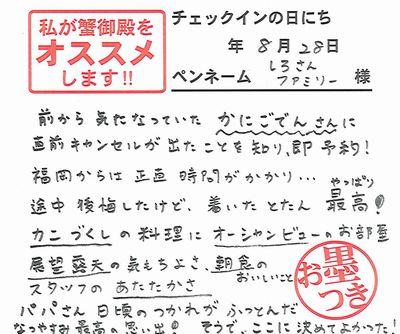 私が蟹御殿を
オススメ
します!!
チェックインの日にち
年 8月 28日
ペンネーム しろさんファミリー 様
前から 気になっていた かにごでんさんに
直前キャンセルが出たことを知り、即予約!
福岡からは 正直 時間がかかり…
途中 後悔したけど、着いたとたん やっぱり 最高!
カニづくしの料理に オーシャンビューのお部屋
展望露天の気もちよさ、朝食のおいしいこと
スタッフの あたたかさ
パパさん 日頃のつかれが ふっとんだ
なつやすみ 最高の思い出! そうで、ここに決めてよかった!
お墨つき